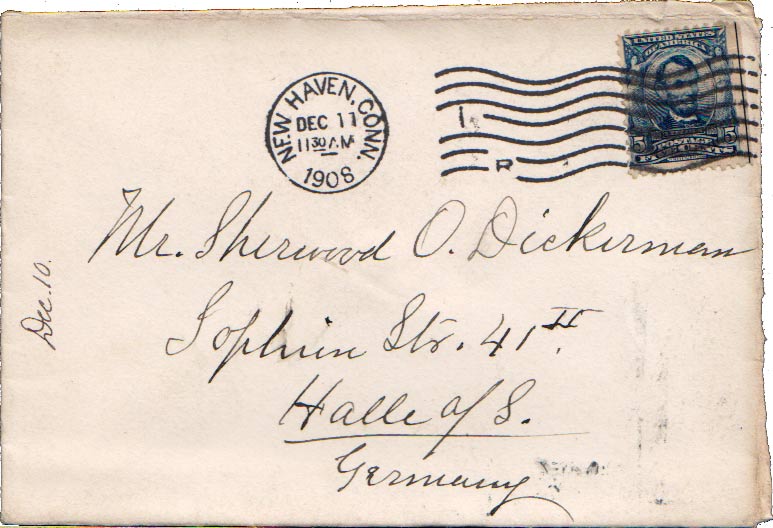 NEW HAVEN, CONN.
DEC 11
11 30 A.M
1908
1
R
UNITED STATES
OF AMERICA
5 5
POSTAGE
Mr. Sherwood O. Dickerman
Sophien Str. 41 II.
Halle a/S.
Germany
Dec. 10.